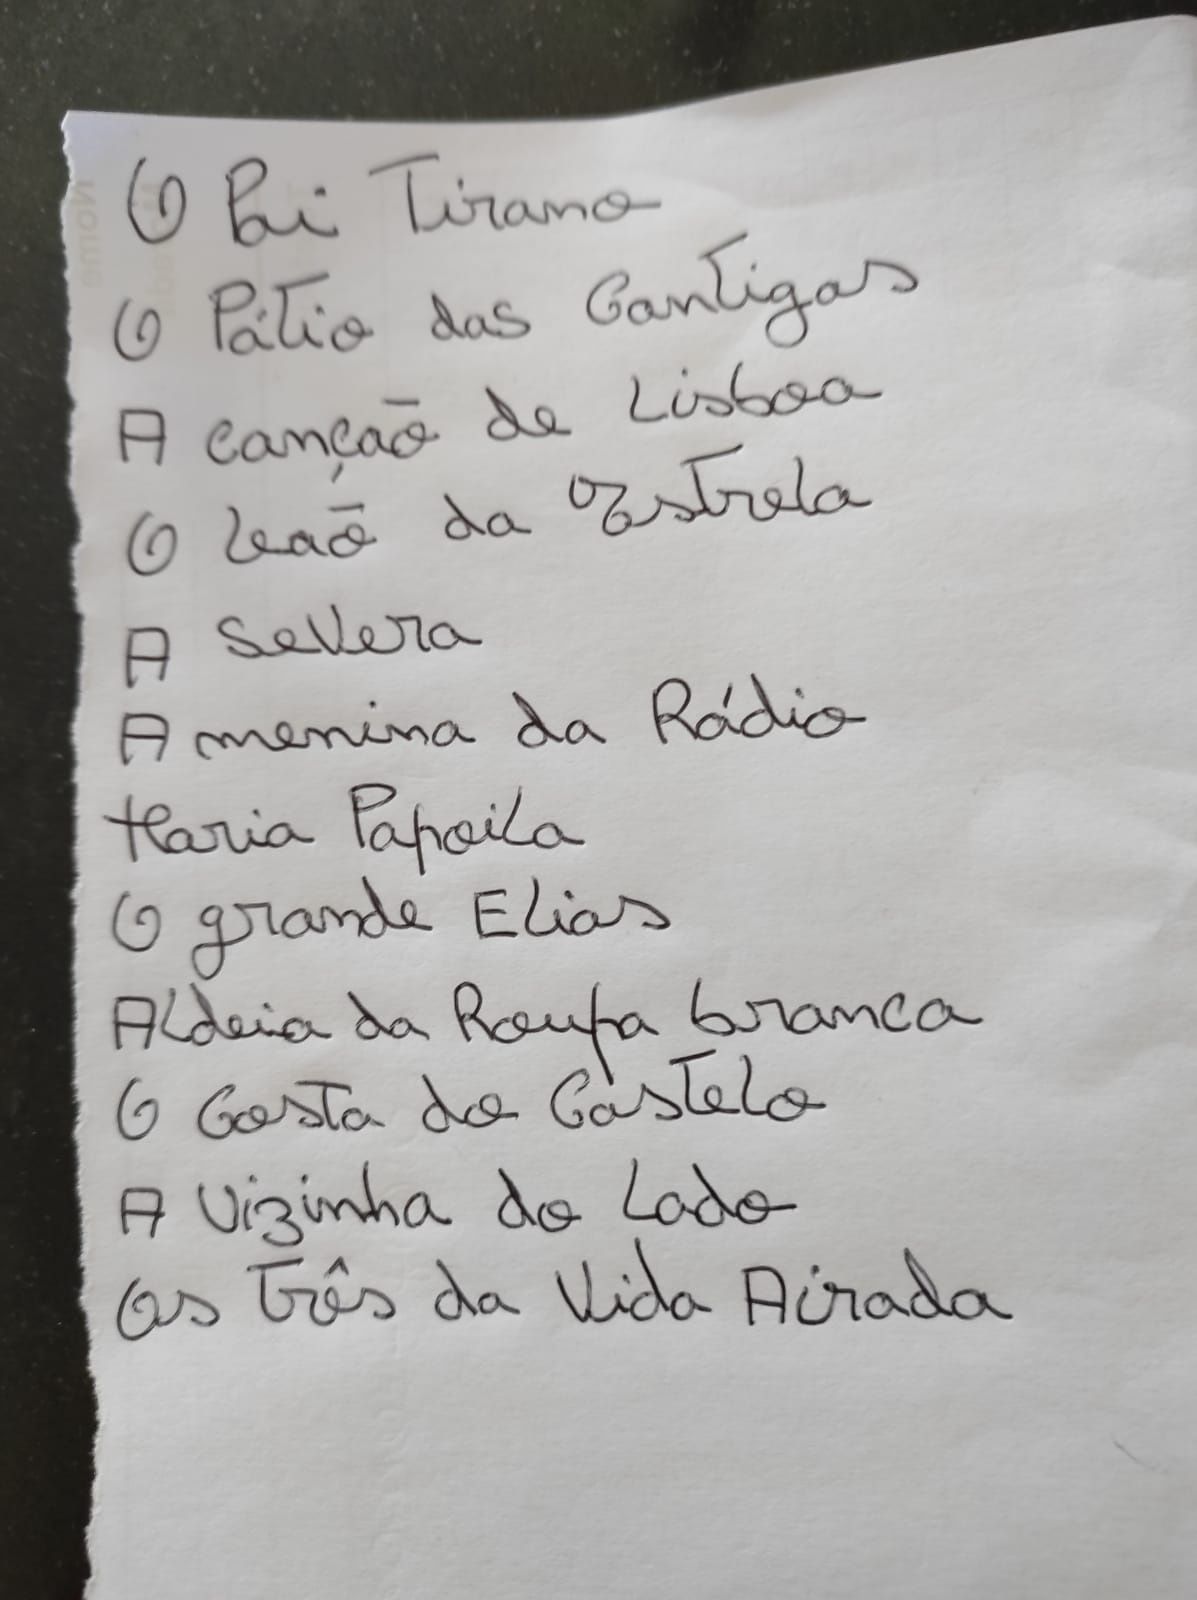 O Pai Tirano
O Pátio das Cantigas
A canção de Lisboa
O Leão da Estrela
A Severa
A menina da Rádio
Maria Papoila
O grande Elias
Aldeia da Roupa branca
O Costa do Castelo
A Vizinha do Lado
Os Três da Vida Airada